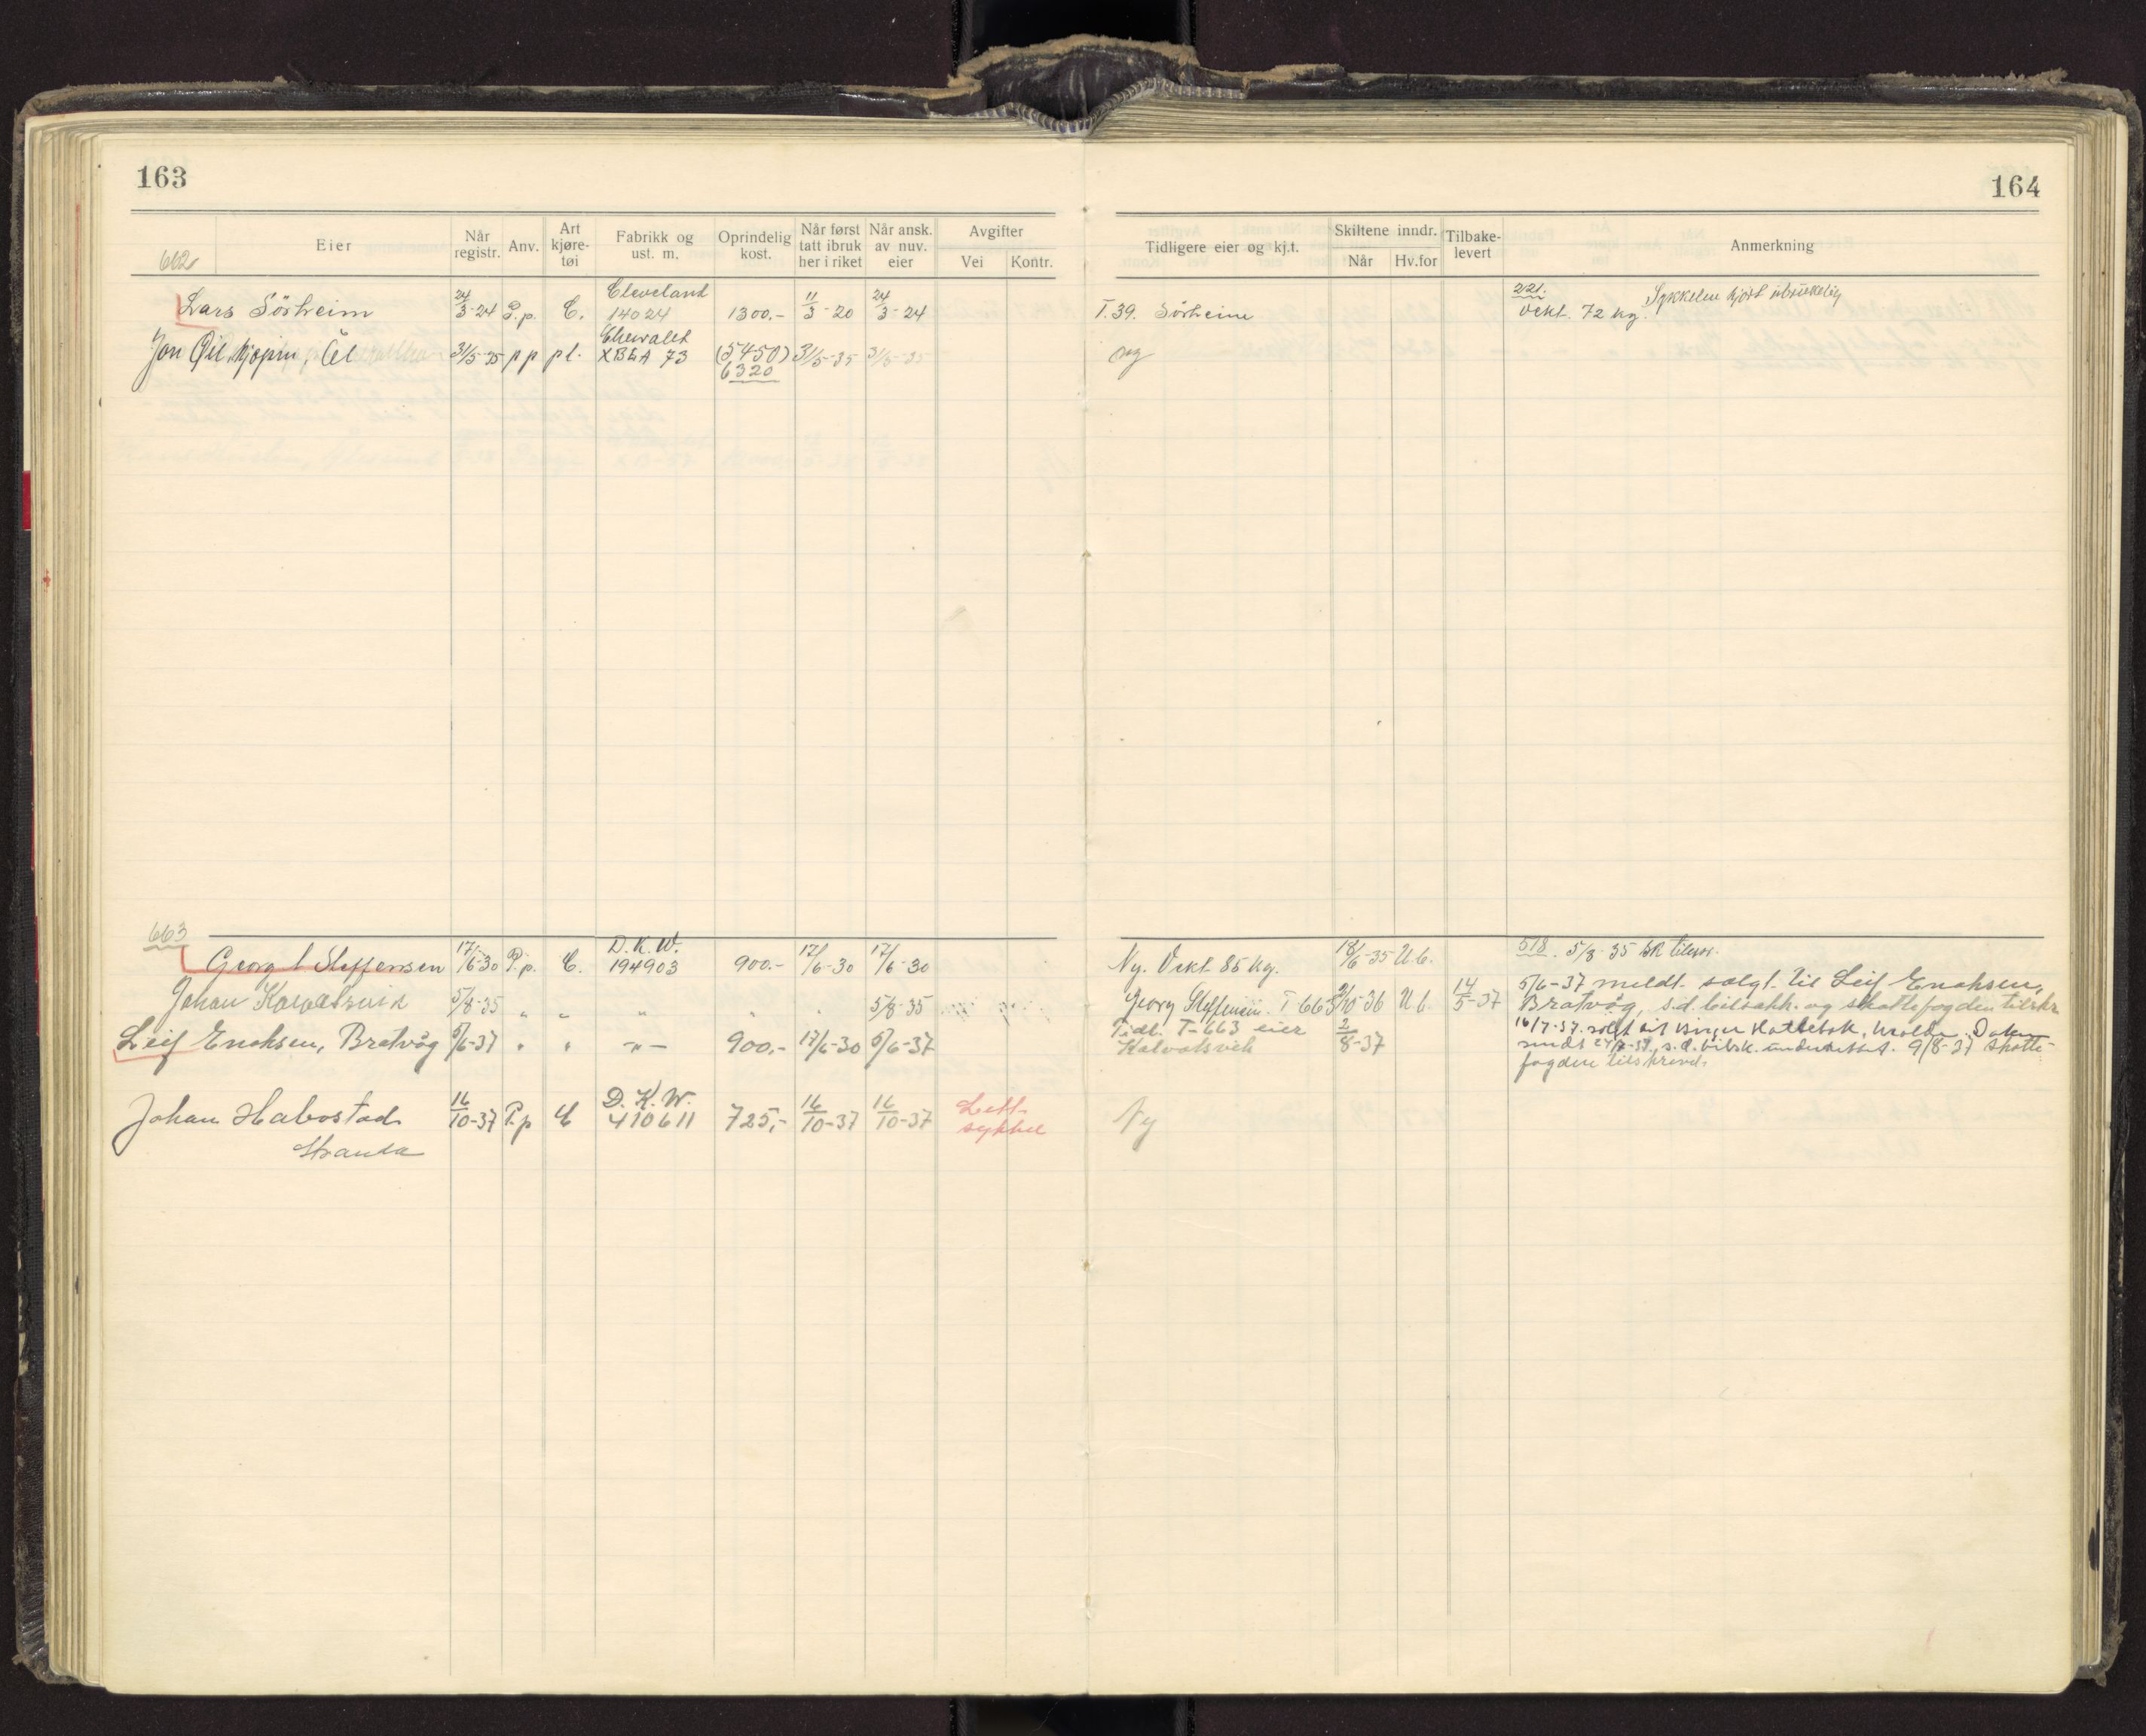 163
164
Eier
Når registr.
Anv.
Art kjøre-tøi
Fabrikk og ust. m.
Oprindelig kost.
Når først tatt ibruk her i riket
Når ansk. av nuv. eier
Avgifter
Vei
Kontr.
Tidligere eier og kj.t.
Skiltene inndr.
Når
Hv.for
Tilbake-levert
Anmerkning
662
Cleveland
221.
Lars Sörheim 24/3-24 P.p. C. 14024 1300.- 11/3-20 24/3-24 T.39. Sörheim Vekt. 72 kg. Sykkelen kjørt
Chevrolet
Jon 31/5-35 pp pl. XBLA 73 (5450) 31/5-35 31/5-35 ny
6320
663
D.K.W.
518. 5/8-35
Georg Steffensen 17/6-30 P.p. C. 194903 900.- 17/6-30 17/6-30 Ny. Vekt 85 kg. 18/6-35 U b.
Johan 5/8-35 " " " " " 5/8-35 Georg Steffensen. T 663 -36 U b. 14/5-37 5/6-37 meldt solgt til Leif Enoksen,
Bratvög, s.d. og skattefogden tilskr
Leif Enoksen, Bratvåg 5/6-37 " " -"- 900.- 17/6-30 5/6-37 Tidl. T-663 eier 2/8-37 16/7-37 solgt til
Kalvatsvik s.d. underrettet. 9/8-37 skatte-
fogden tilskrevet.
D.K.W.
Johan Habostad 16/10-37 P.p C 410611 725,- 16/10-37 16/10-37 Lett- Ny
sykkel
Stranda